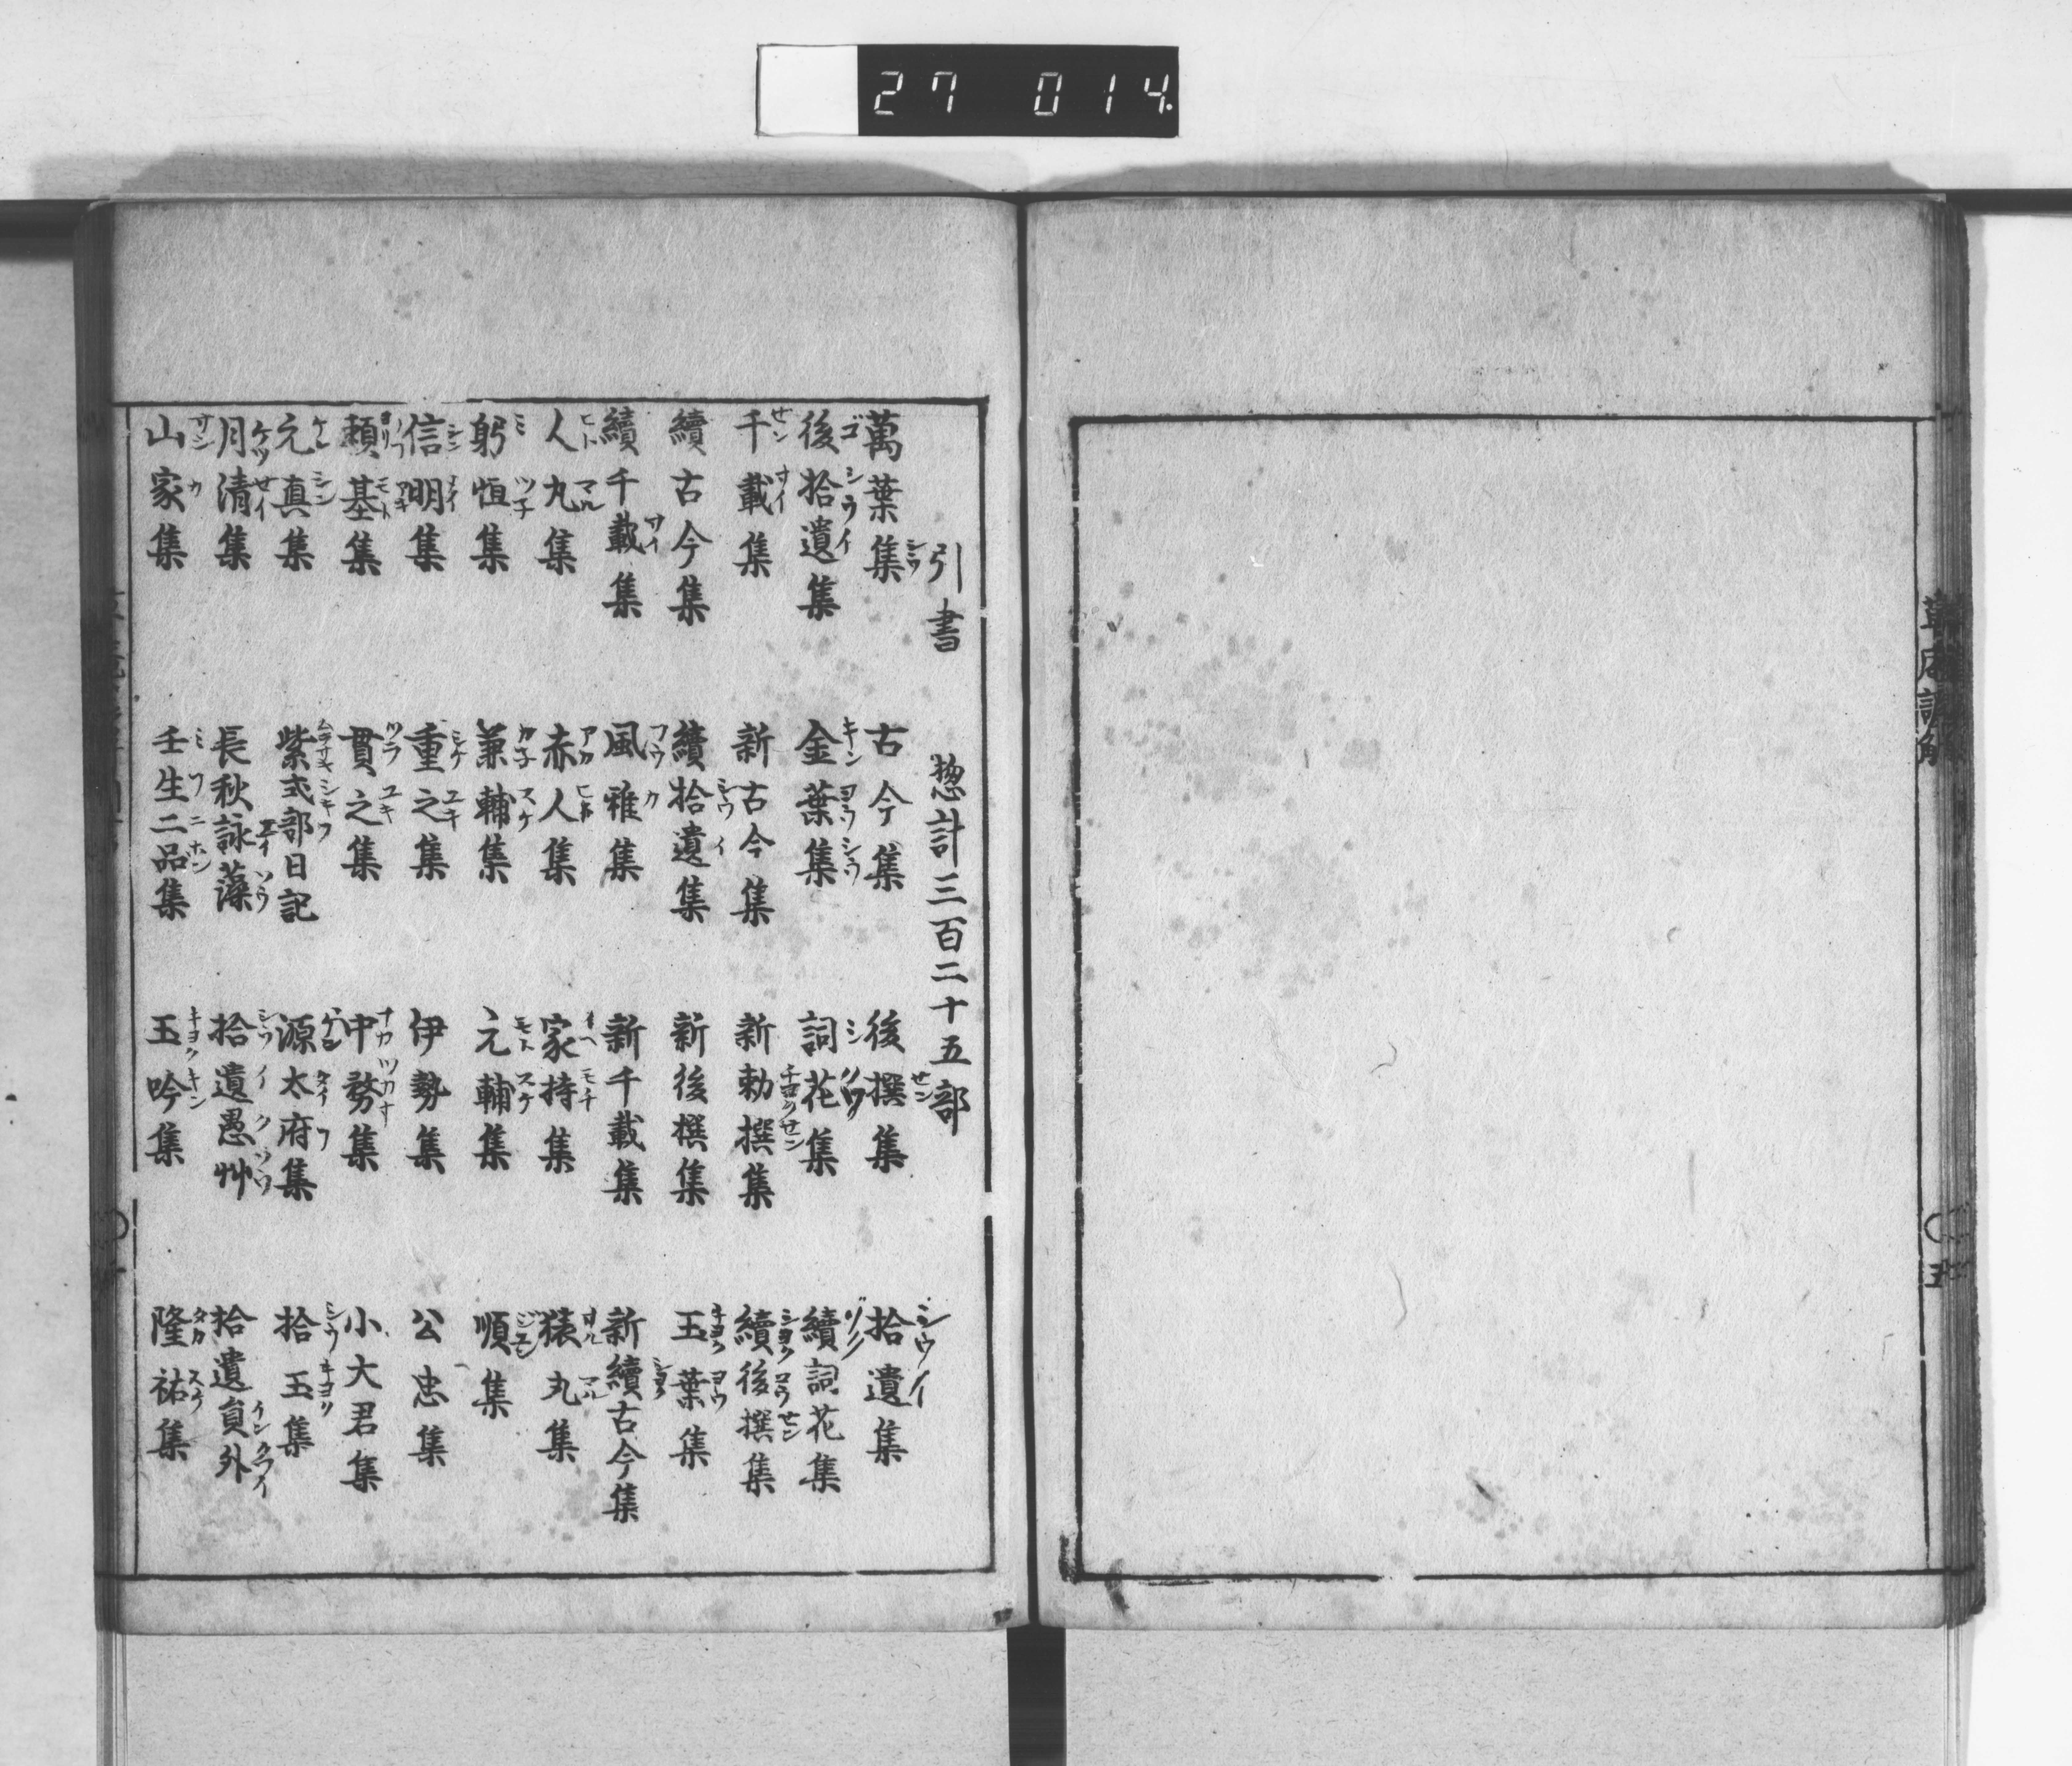 27 014
引書 惣計三百二十五部
萬葉集 古今集 後撰集 拾遺集
後拾遺集 金葉集 詞花集 續詞花集
千載集 新古今集 新勅撰集 續後撰集
續古今集 續拾遺集 新後撰集 玉葉集
續千載集 風雅集 新千載集 新續古今集
人丸集 赤人集 家持集 猿丸集
躬恒集 兼輔集 元輔集 順集
信明集 重之集 伊勢集 公忠集
頼基集 貫之集 中務集 小大君集
元真集 紫式部日記 源太府集 拾玉集
月清集 長秋詠藻 拾遺愚艸 拾遺員外
山家集 壬生二品集 玉吟集 隆祐集